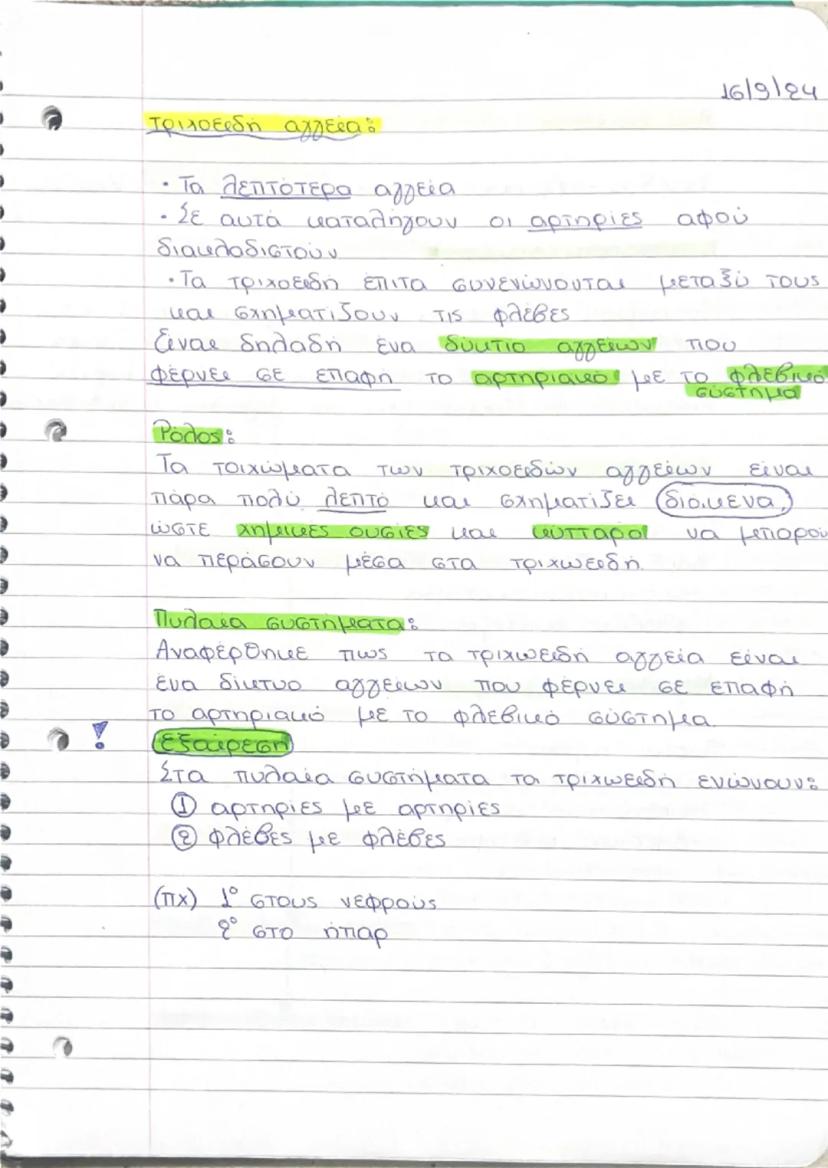 16/9/24
τριχοειδή αγγεία:
• Τα λεπτότερα αγγεία
• Σε αυτά καταλήγουν οι αρτηρίες αφού
διακλαδιστούν
• Τα τριχοειδή έπιτα συνενώνονται μεταξύ τους
και σχηματίζουν τις φλέβες
Είναι δηλαδή ένα δύκτιο αγγείων που
φέρνει σε επαφή το αρτηριακό με το φλεβικό
σύστημα
Ρόλος:
Τα τοιχώματα των τριχοειδών αγγείων είναι
πάρα πολύ λεπτό και σχηματίζει διάκενα,
ώστε χημικές ουσίες και κύτταρα να μπορού
να περάσουν μέσα στα τριχωειδή.
Πυλαία συστήματα:
Αναφέρθηκε πως τα τριχωειδή αγγεία είναι
ένα δίκτυο αγγείων που φέρνει σε επαφή
το αρτηριακό με το φλεβικό σύστημα.
! εξαίρεση
Στα πυλαία συστήματα τα τριχωειδή ενώνουν:
① αρτηρίες με αρτηρίες
② φλέβες με φλέβες
(πχ) 1° στους νεφρούς
2° στο ήπαρ